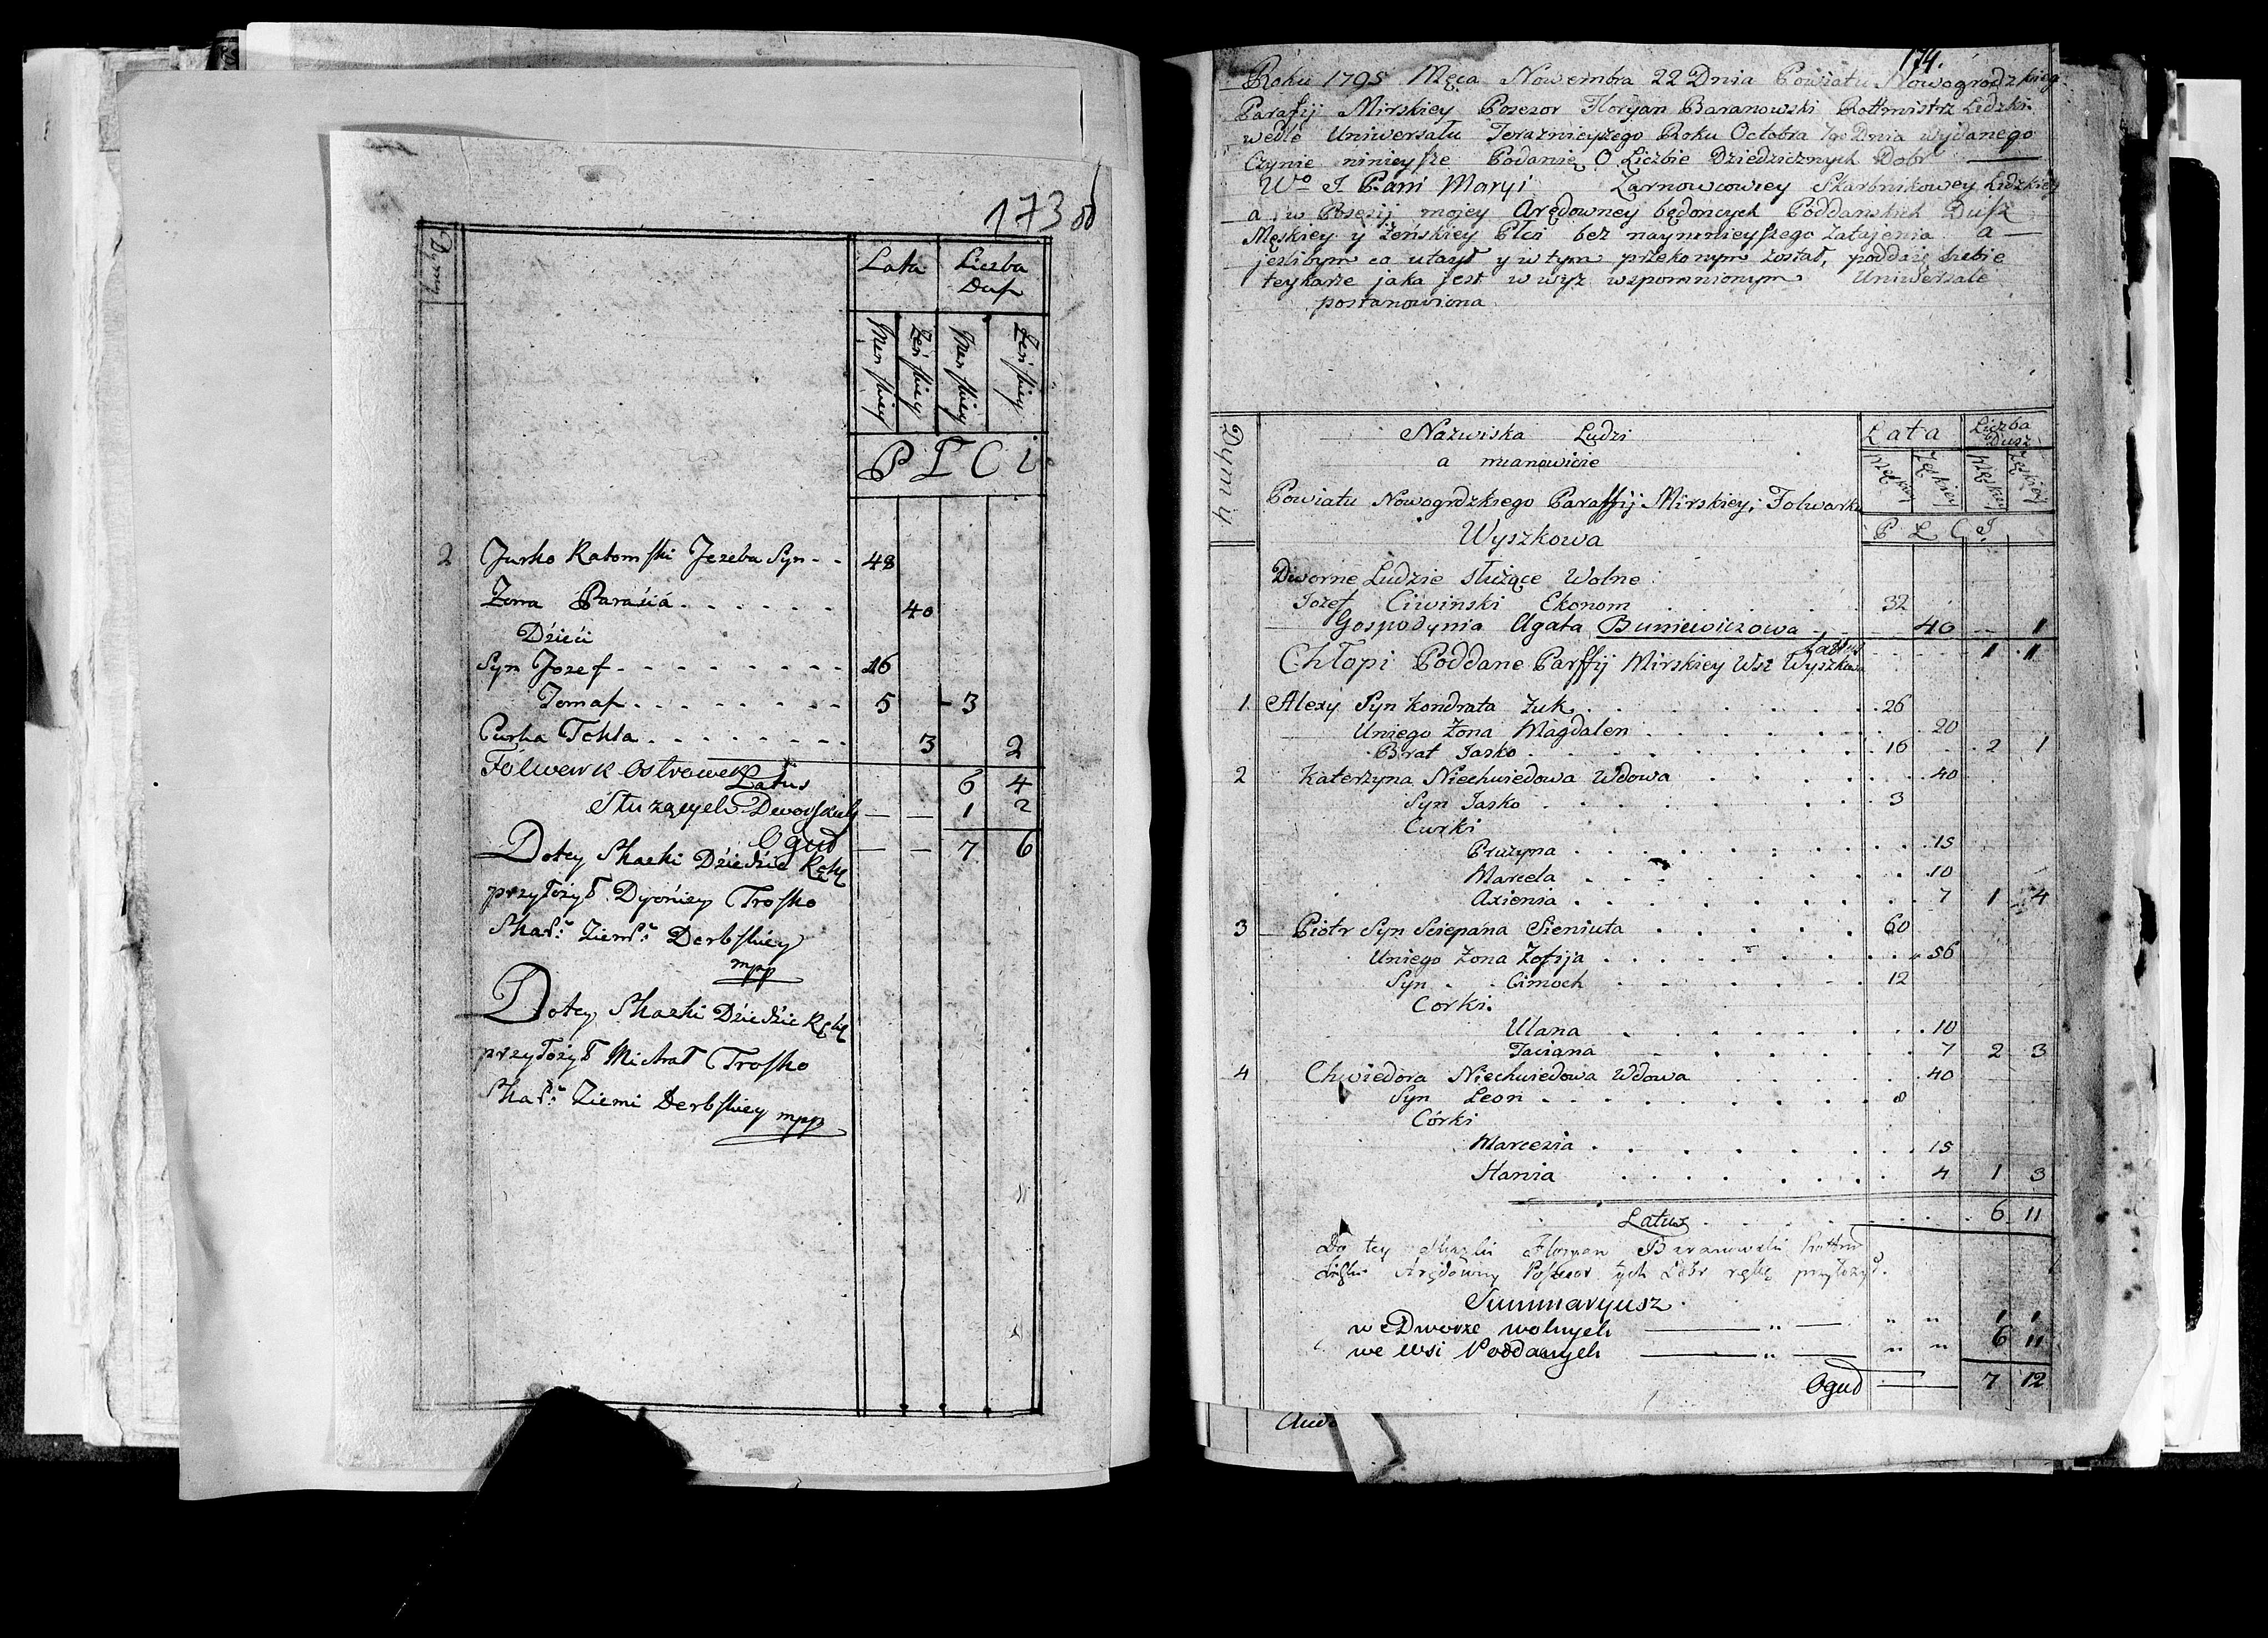 173 об
Dymy
Lata Liczba Dusz
Męnskiey Żeńskiey Męnskiey Żeńskiey
P Ł C i
2 Jurko Ratomski Jezeba Syn - - 48
Żona Paraśia . . . . . . 40
Dzieci
Syn Jozef - - - - - - - - - 16
Tomasz . . . - - - - - 5 - 3
Curka Tekla . . . . . . . . 3 2
Folwerk Ostrowek
Latus 6 4
Służących Dworskich — — 1 2
Ogud — — 7 6
Do tey Skazki Dziedzic Rękę
przyłożył Dyonizy Trosko
Skar: Ziems: Derbskiey
mpp
Do tey Skazki Dziedzic Rękę
przyłożył Michał Trosko
Skar: Ziemi Derbskiey mpp
174.
Roku 1795 Męca Nowembra 22 Dnia Powiatu Nowogrodzkieg
Parafij Mirskiey Posezor Floryan Baranowski Rottmistrz Lidzki
wedle Uniwersału Teraznieyszego Roku Octobra 7go Dnia wydanego
Czynie ninieysze Podanię O Liczbie Dziedzicznych Dobr —
Wo J Pani Maryi Zarnowcowiey Skarbnikowey Lidzkiey
a w Posesij mojey Arędowney będońcych Poddanskich Dusz
Męskiey y Zeńskiey Płci bez naymnieyszego Zatajenia a —
jezlibym co utaył y w tym przekonym został, poddaię siebie
tey karze jaka jest w wyz wspomnionym Uniwersale
postanowiona
Dymy
Nazwiska Ludzi
a mianowicie
Lata Liczba Dusz
Męskiey Żęskiey Męskiey Żęskiey
P Ł C I.
Powiatu Nowogrdzkiego Paraffij Mirskiey; Folwarku
Wyszkowa
Dworne Ludzie służące Wolne
Jozef Ciwinski Ekonom . . . . . 32
Gospodynia Agata Buniewiczowa . . . 40 1
Latus . . . . 1 1
Chłopi Poddane Parffij Mirskiey Wsi Wyszkowa
1 Alexy Syn Kondrata Żuk . . . . . . 26
Uniego Żona Magdalen . . . . . . . 20
Brat Jasko . . . . . . . 16 . . 2 1
2 Katerzyna Niechwiedowa Wdowa . . . . . 40
Syn Jasko . . . . . . . 3
Curki
Pruzyna . . . . . . . . . 15
Marcela . . . . . . . . 10
Axienia . . . . . . . . 7 1 4
3 Piotr Syn Sciepana Sieniuta . . . . . 60
Uniego Żona Zofija . . . . . . . . 56
Syn . . Cimoch . . . . . . 12
Corki.
Ulana . . . . . . . . 10
Taciana . . . . . . . 7 2 3
4 Chwiedora Niechwiedowa Wdowa . . . . . 40
Syn Leon . . . . . . . . 8
Córki
Marcezia . . . . . . . . 15
Hania . . . . . . . 4 1 3
Latus . . . . . . . 6 11
Do tey Skazki Floryan Baranowski Rottm
Lidzki Arędowny Posesor tych Dobr rękę przyłożył.
Summaryusz.
we Dworze wolnych — „ — „ „ 1 1
we wsi Poddanych — „ — „ „ 6 11
Ogud — 7 12